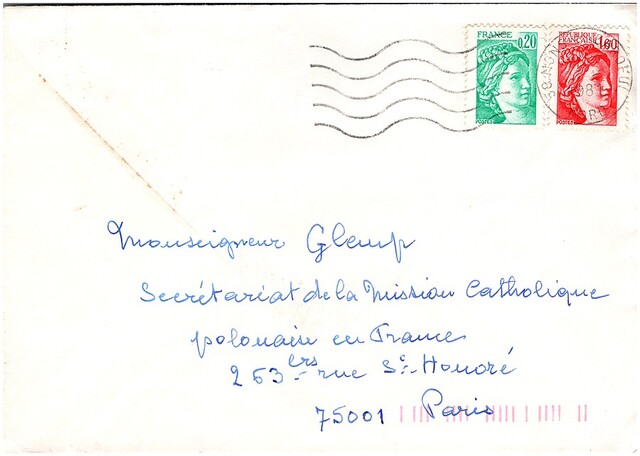 FRANCE 0,20
REPUBLIQUE FRANÇAISE 1,60
Monseigneur Glemp
Secrétariat de la Mission Catholique
polonaise en France
263 ers rue St. Honoré
75001 Paris